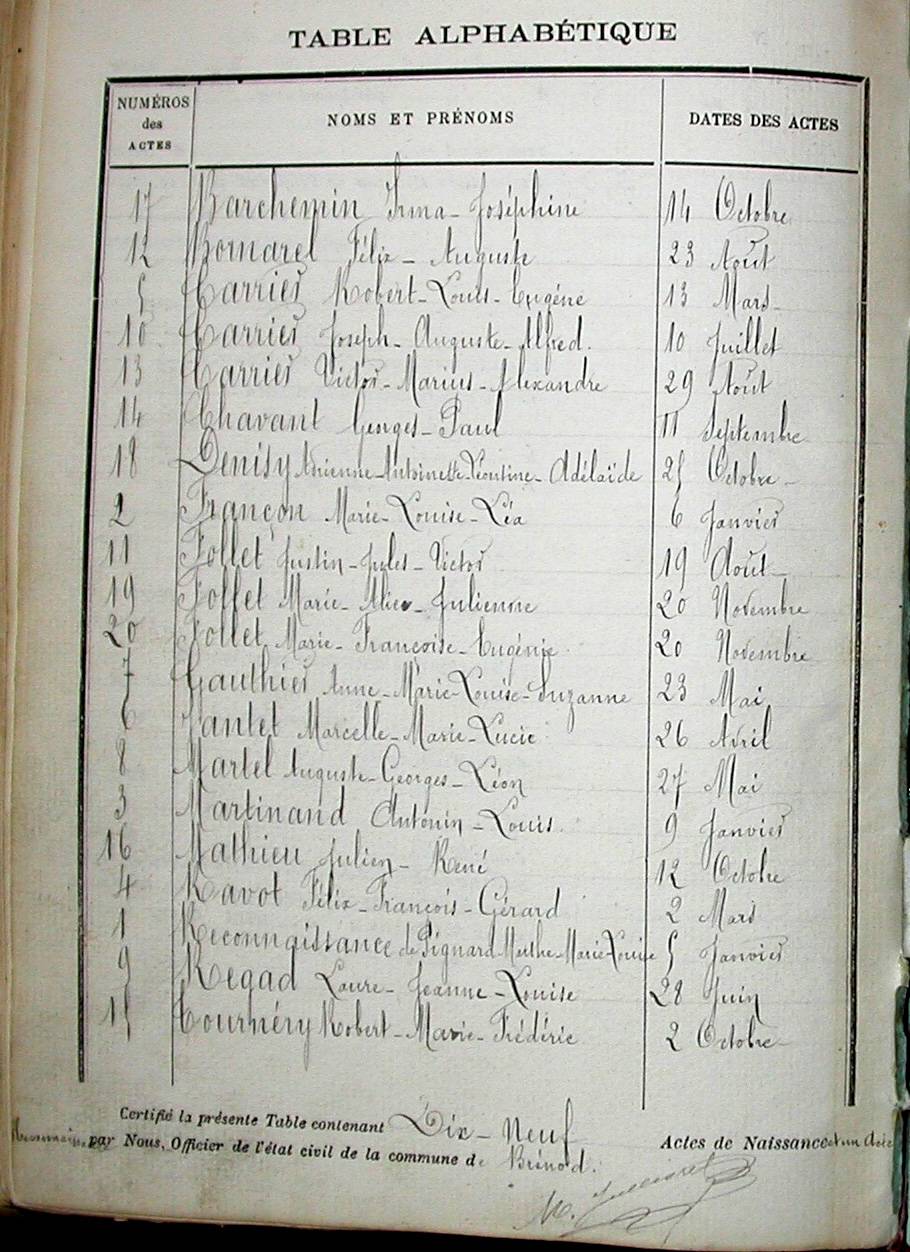 TABLE ALPHABÉTIQUE
NUMÉROS des ACTES NOMS ET PRÉNOMS DATES DES ACTES
17 Barchemin Irma-Joséphine 14 Octobre
12 Bornarel Félix-Auguste 23 Août
5 Carrier Robert-Louis-Eugène 13 Mars
10 Carrier Joseph-Auguste-Alfred. 10 Juillet
13 Carrier Victor-Marius-Alexandre 29 Août
14 Chavant Georges-Paul 11 Septembre
18 Denisy Adrienne-Antoinette-Léontine-Adélaïde 25 Octobre
2 Françon Marie-Louise-Léa 6 Janvier
11 Follet Justin-Jules-Victor 19 Août
19 Follet Marie-Alice-Julienne 20 Novembre
20 Follet Marie-Françoise-Eugénie 20 Novembre
7 Gauthier Anne-Marie-Louise-Suzanne 23 Mai
6 Jantet Marcelle-Marie-Lucie 26 Avril
8 Martel Auguste-Georges-Léon 27 Mai
3 Martinand Antonin-Louis. 9 Janvier
16 Mathieu Julien-René 12 Octobre
4 Ravot Félix-François-Gérard 2 Mars
1 Reconnaissance de Pignard Marthe-Marie-Louise 5 Janvier
9 Regad Laure-Jeanne-Louise 28 Juin
15 Tournéry Robert-Marie-Frédéric 2 Octobre
Certifié la présente Table contenant Dix-Neuf Actes de Naissance et un Acte
par Nous, Officier de l'état civil de la commune de Brénod.
M.